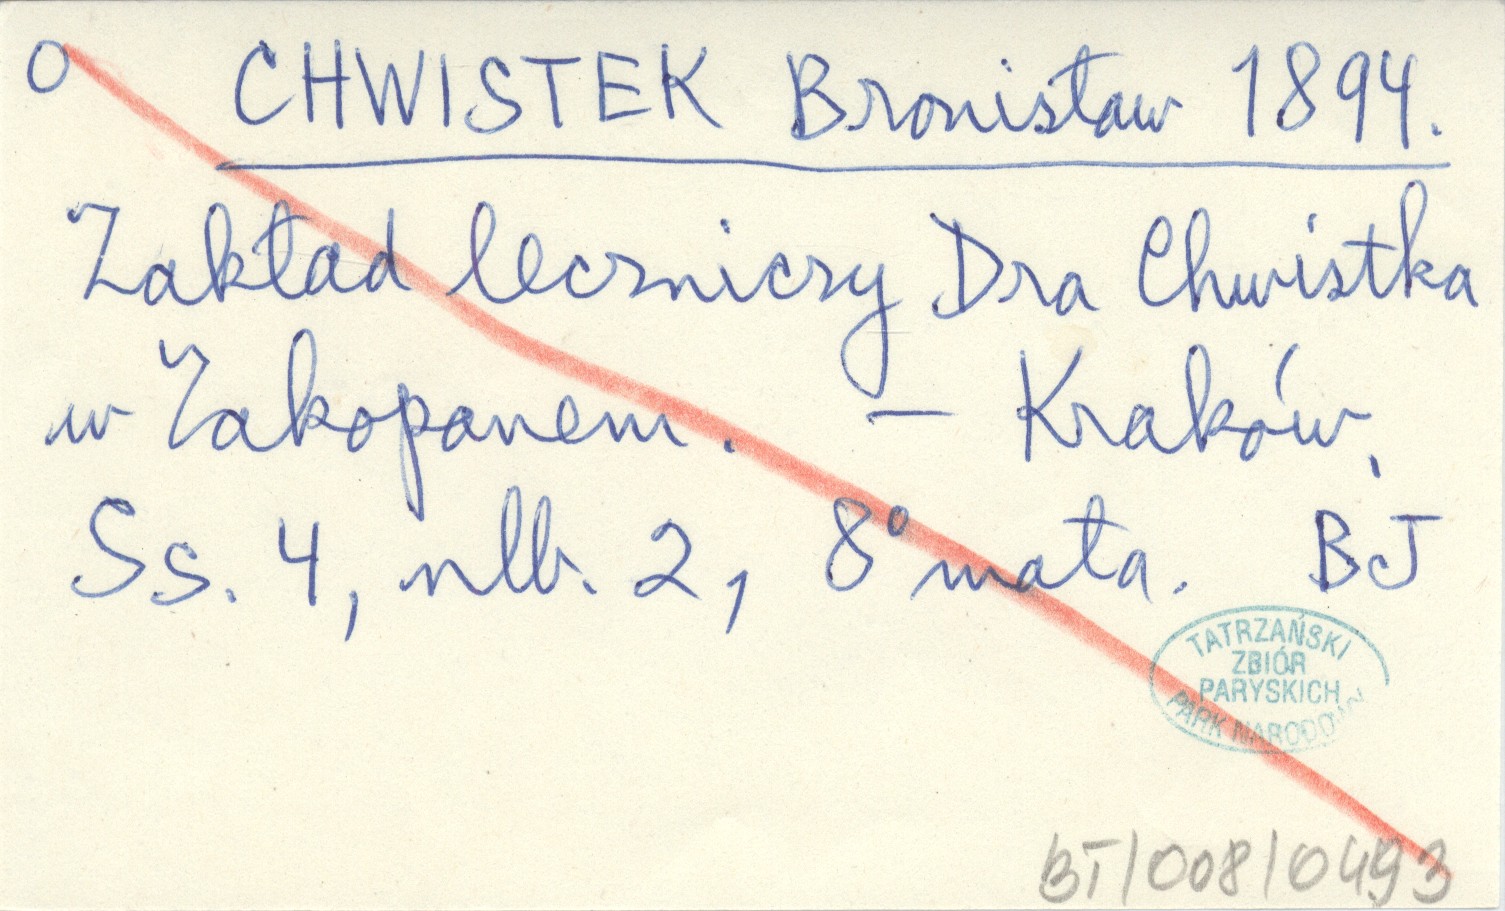 O CHWISTEK Bronisław 1894.
Zakład leczniczy Dra Chwistka
w Zakopanem. — Kraków,
Ss. 4, nlb. 2, 8° mała. BJ
TATRZAŃSKI
ZBIÓR
PARYSKICH
PARK NARODOWY
BT/008/0493